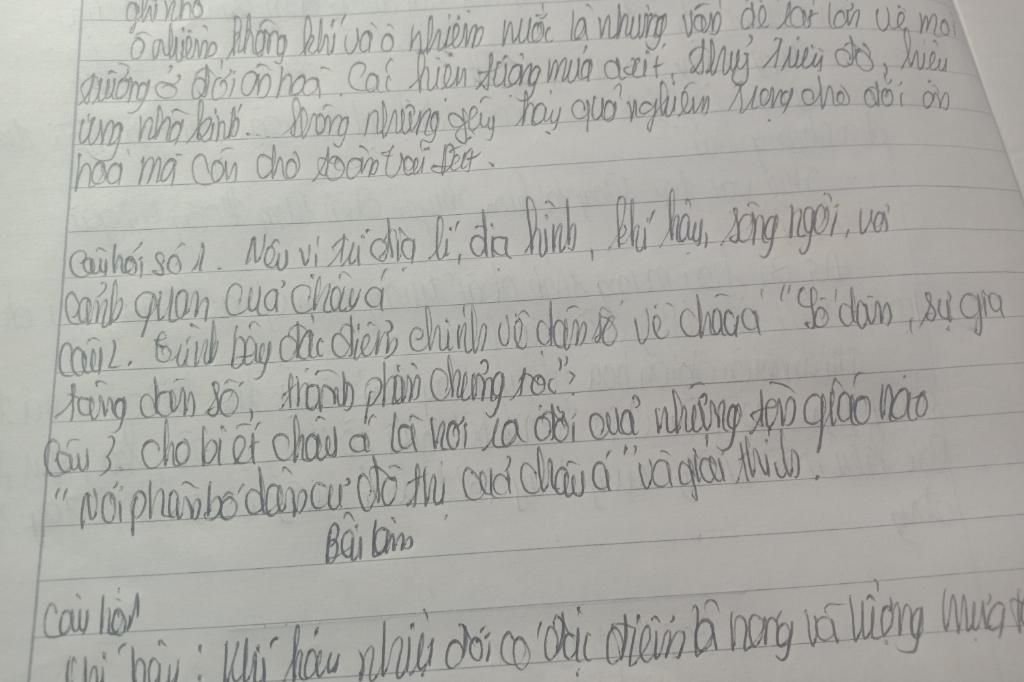 ghi nhớ
ô nhiễm không khí và ô nhiễm nước là nhưng vấn đề rất lớn về môi
trường ở đới ôn hoà. Các hiện tượng mưa axit, thuỷ triều đỏ, hiêu
ứng nhà kính. không những gây hậy quả nghiêm trọng cho đới ôn
hoà mà còn cho toàn trái đất.
Câu hỏi số 1. Nêu vị trí địa lí, địa hình, khí hậu, sông ngòi, và
cảnh quan của châu á
câu 2. trình bày đặc điểm chính về dân số về châu á "Số dân, sự gia
tăng dân số, thành phần chủng tộc"?
Câu 3. cho biết châu á là nơi ra đời của những tôn giáo nào
"Nơi phân bố dân cư đô thị của châu á" và giải thích.
Bài làm
câu hỏi 1
khí hậu: khí hậu nhiệt đới có đặc điểm là nóng và lượng mưa